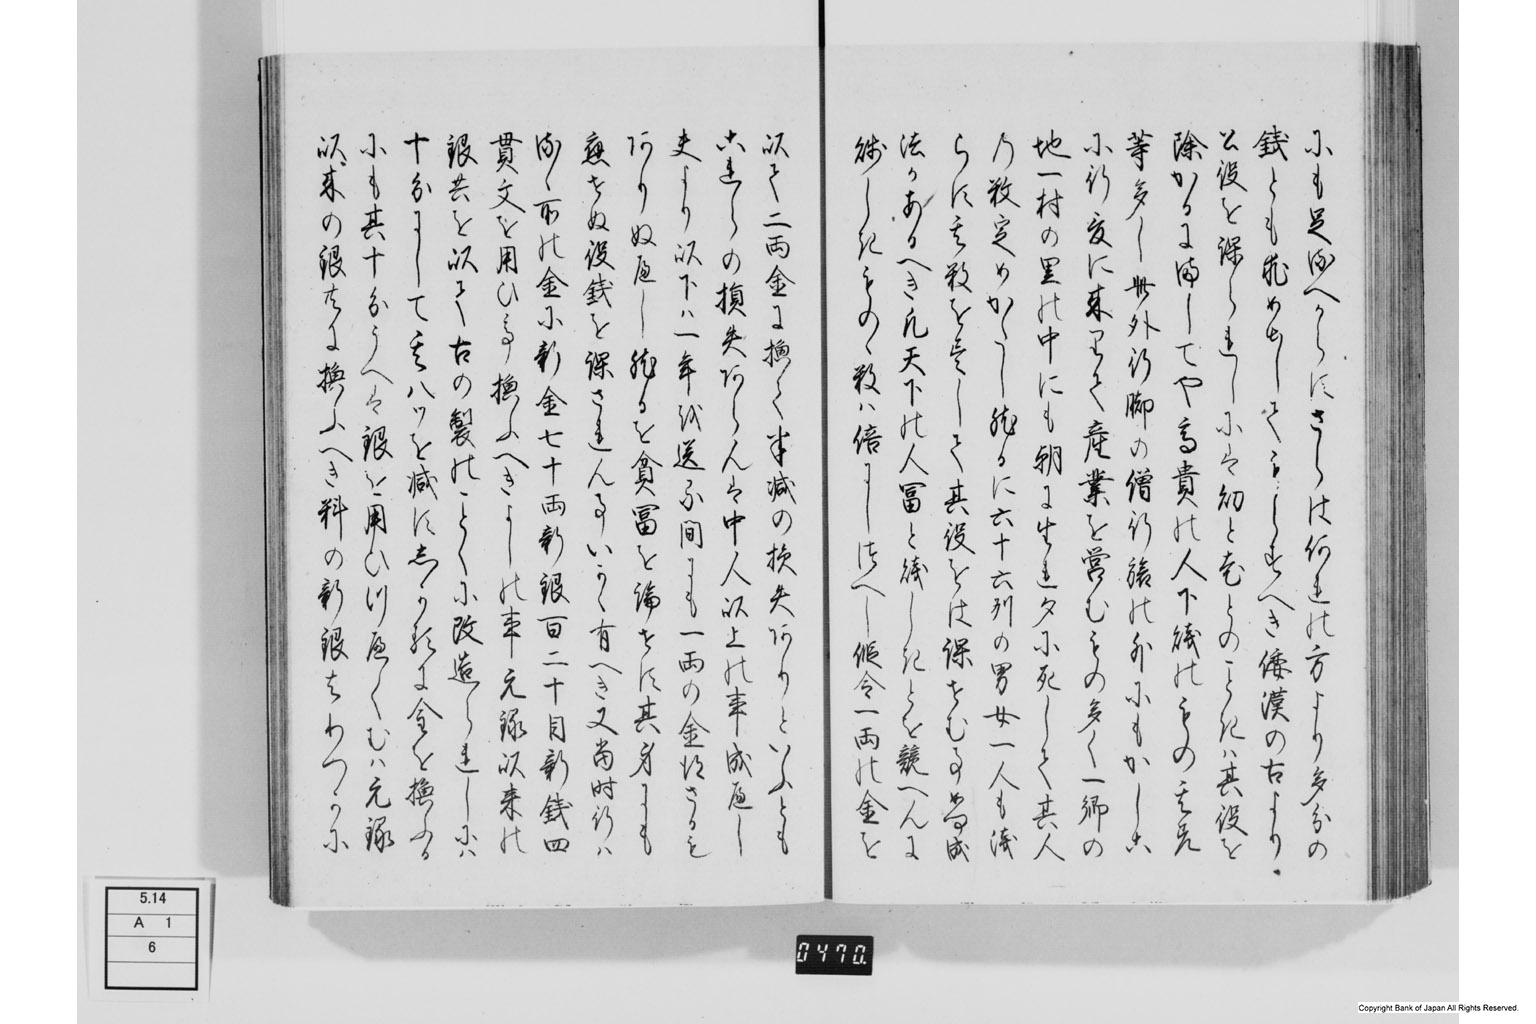 にも足るへからすさらは何れの方より多分の
銭とも求めすへき倭漢の古より
公役を課られしには幼と老とのことは其役を
除かるましてや高貴の人下賤のもの
等多し此外行脚の僧行旅の外にもかしこ
に行爰に来りて産業を営むもの多く一郷の
地一村の里の中にも朝に生れ夕に死して其人
の数定めかたし然るに六十六州の男女一人も洩
らす其数を尽して其役をは課せむ事
法かあるへき凡天下の人富と賤しきとを競へんに
賤しきものゝ数は倍すへし仮令一両の金を
以て二両金に換て半減の損失ありといふとも
これらの損失あらんは中人以上の事成へし
夫より以下は一年を送る間にも一両の金
ありぬへし然るを貧富を論せす其身にも
応せぬ役銭を課されん事いかゝ有へき又当時行は
るゝ所の金に新金七十両新銀百二十目新銭四
貫文を用ひ換ふへきよしの事元禄以来の
銀共を以て古の製のことくに改造られしには
十分にして其八ツを減すしかるに今を換ふる
にも其十分うへは銀を用ひ行へくむは元禄
以来の銀共に換ふへき料の新銀はわつかに
5.14
A 1
6
0470.
Copyright Bank of Japan All Rights Reserved.